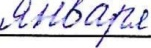 января